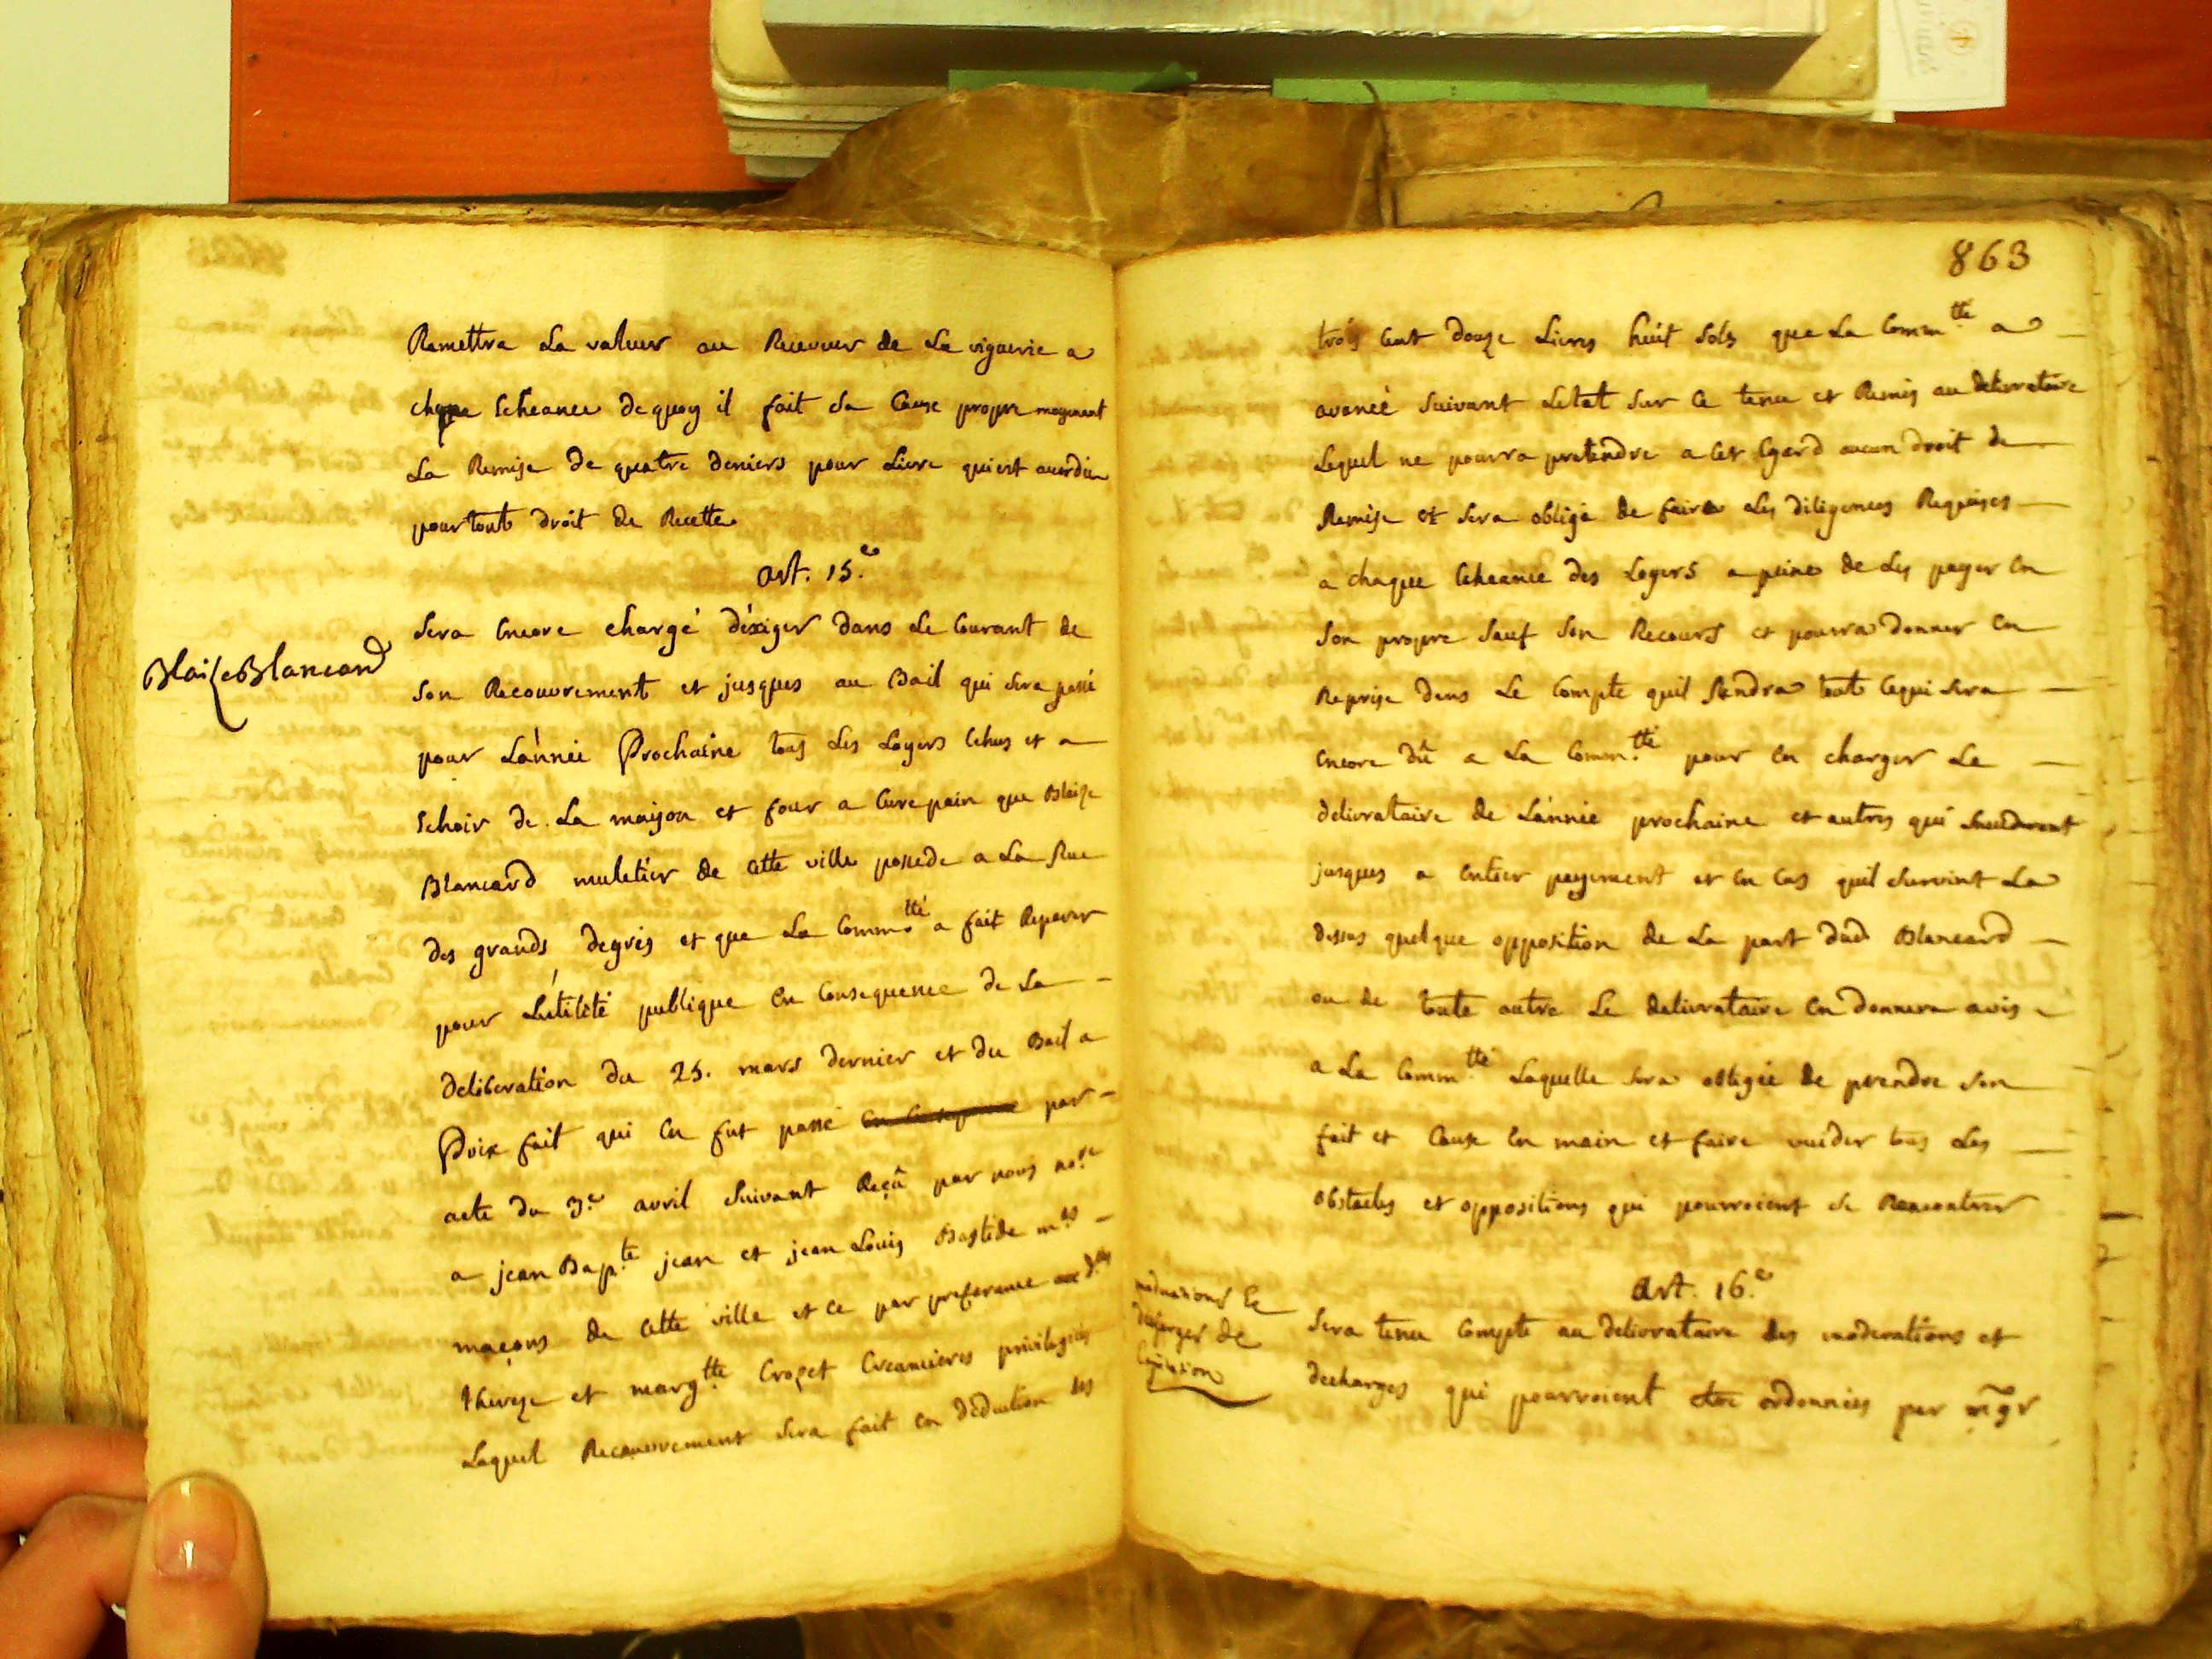 Remettra La valeur au Receveur de La viguerie a
chaque Echeance de quoy il fait sa Cause propre moyenant
La Remise de quatre deniers pour Livre qui est accordée
pour tout droit de Recette
art. 15.e
Blaize Blancard
Sera Encore chargé déxiger dans Le Courant de
Son Recouvrement et jusques au Bail qui Sera passé
pour Lánnée Prochaine tous Les Loyers Echus et a
Echoir de La maison et four a Cuire pain que Blaize
Blancard muletier de Cette ville possede a La Rue
des grands degrés et que La Comm.tté a fait Reparer
pour Lútilité publique En Consequence de La
deliberation du 25. mars dernier et du Bail a
Prix fait qui En fut passé par
acte du 3.e avril Suivant Reçû par nous no.re
a jean Bap.te jean et jean Louis Bastide m.es
maçons de Cette ville et Ce par preferance aux d.lles
therese et marg.tte Crozet Creancieres privilegiées
Lequel Recouvrement Sera fait en déduction des
863
trois Cent douze Livres huit Sols que La Comm.tté a
avancé Suivant Letat Sur Ce tenu et Remis au delivrataire
Lequel ne pourra pretendre a Cet Egard aucun droit de
Remise et Sera obligé de faire Les diligences Requises
a chaque Echeance des Loyers a peine de Les payer En
Son propre Sauf Son Recours et pourra donner En
Reprise dans Le Compte quil Rendra tout Cequi Sera
Encore dû a La Comm.tté pour En charger Le
delivrataire de Lánnée prochaine et autres qui Succederont
jusques a Entier payement et En Cas quil Survint La
dessus quelque opposition de La part dud Blancard
ou de toute autre Le delivrataire En donnera avis
a La Comm.tté Laquelle Sera obligée de prendre Son
fait et Cause En main et faire vuider tous Les
obstacles et oppositions qui pourroient Se Rencontrer
art. 16.e
moderations Et
decharges de
Capitation
Sera tenu Compte au delivrataire des moderations et
decharges qui pourroient etre ordonnées par mgr